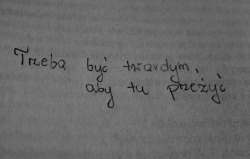 Trzeba być twardym,
aby tu przeżyć